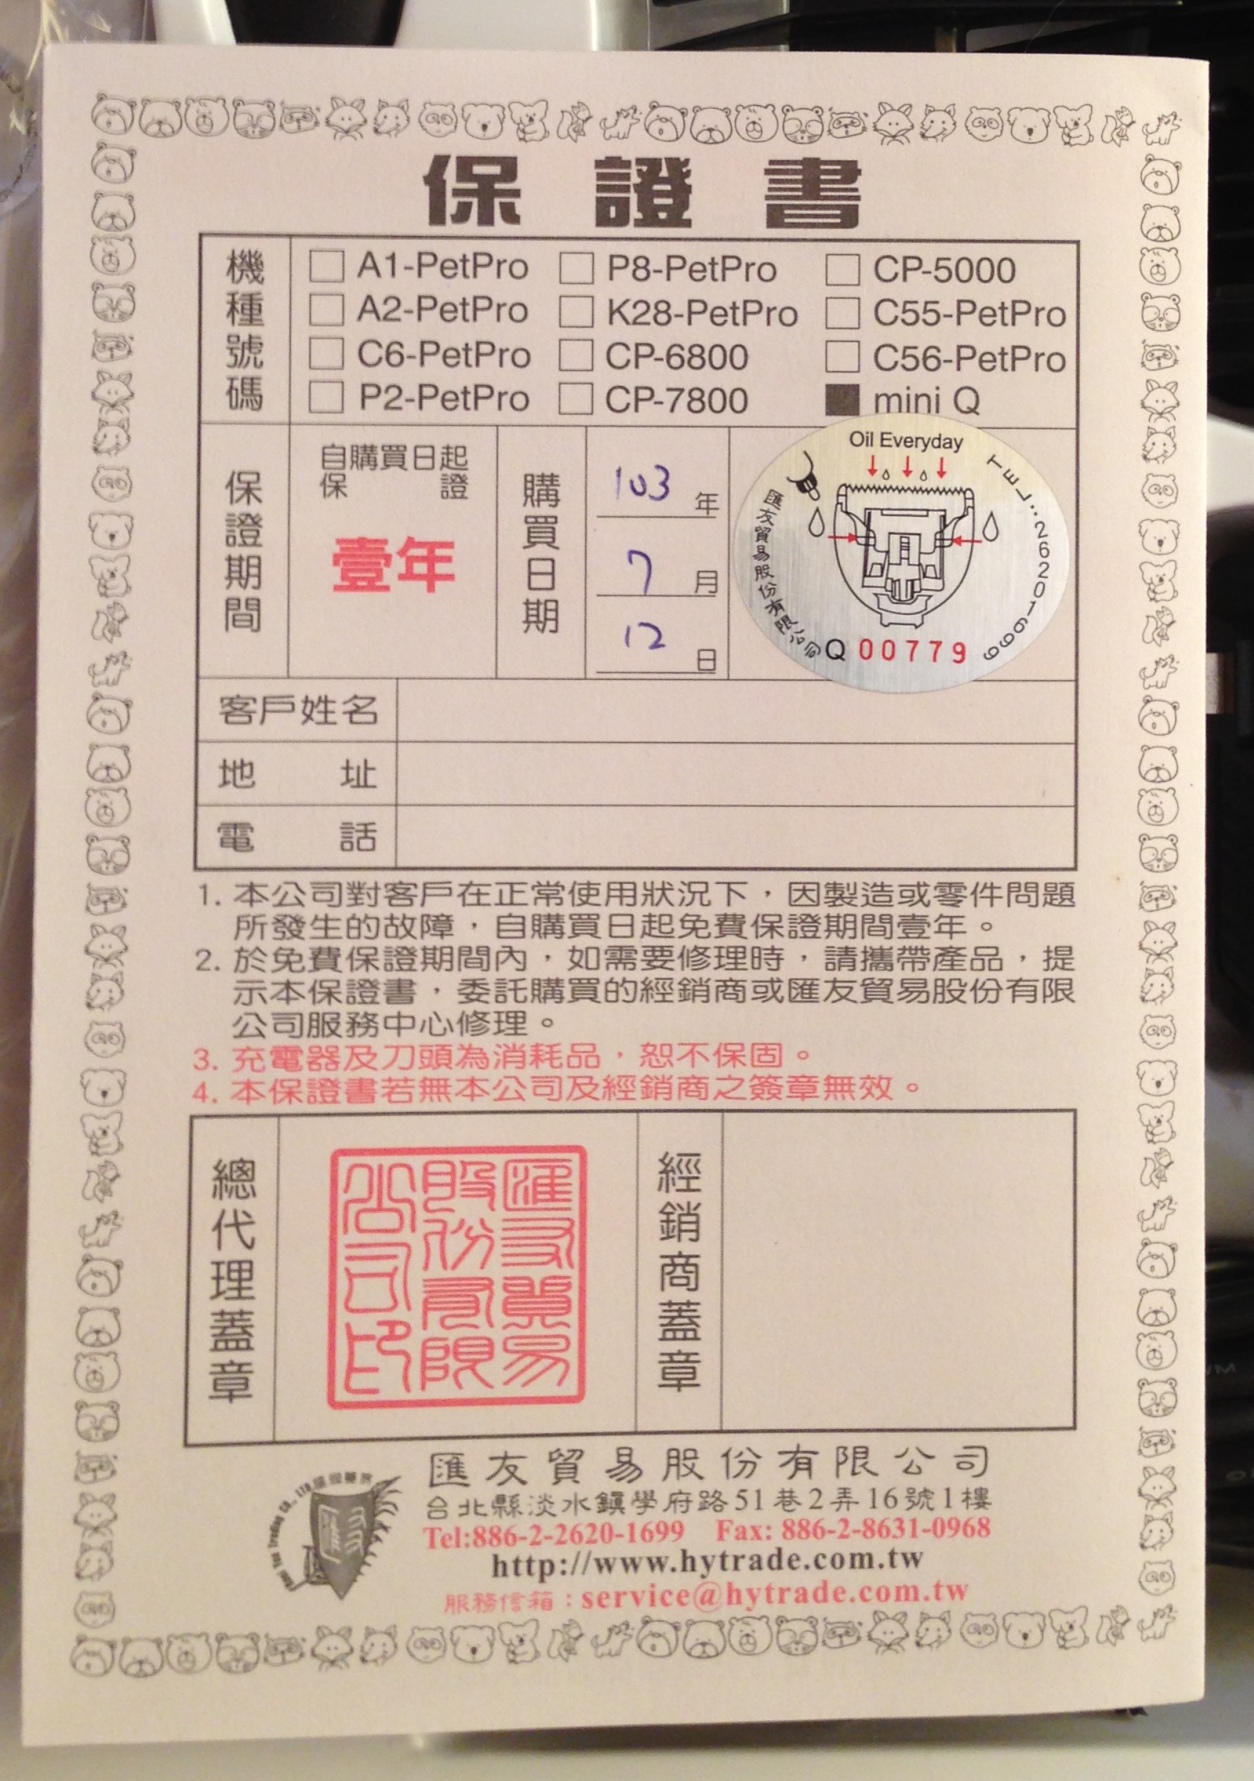 保證書
機種號碼
A1-PetPro P8-PetPro CP-5000
A2-PetPro K28-PetPro C55-PetPro
C6-PetPro CP-6800 C56-PetPro
P2-PetPro CP-7800 mini Q
保證期間
自購買日起
保 證
壹年
購買日期
103 年
7 月
12 日
Oil Everyday
匯友貿易股份有限公司
TEL:26201699
Q 00779
客戶姓名
地 址
電 話
1. 本公司對客戶在正常使用狀況下，因製造或零件問題
所發生的故障，自購買日起免費保證期間壹年。
2. 於免費保證期間內，如需要修理時，請攜帶產品，提
示本保證書，委託購買的經銷商或匯友貿易股份有限
公司服務中心修理。
3. 充電器及刀頭為消耗品，恕不保固。
4. 本保證書若無本公司及經銷商之簽章無效。
總代理蓋章
匯友貿易
股份有限
公司印
經銷商蓋章
匯友貿易股份有限公司
台北縣淡水鎮學府路51巷2弄16號1樓
Tel:886-2-2620-1699 Fax: 886-2-8631-0968
http://www.hytrade.com.tw
服務信箱：service@hytrade.com.tw